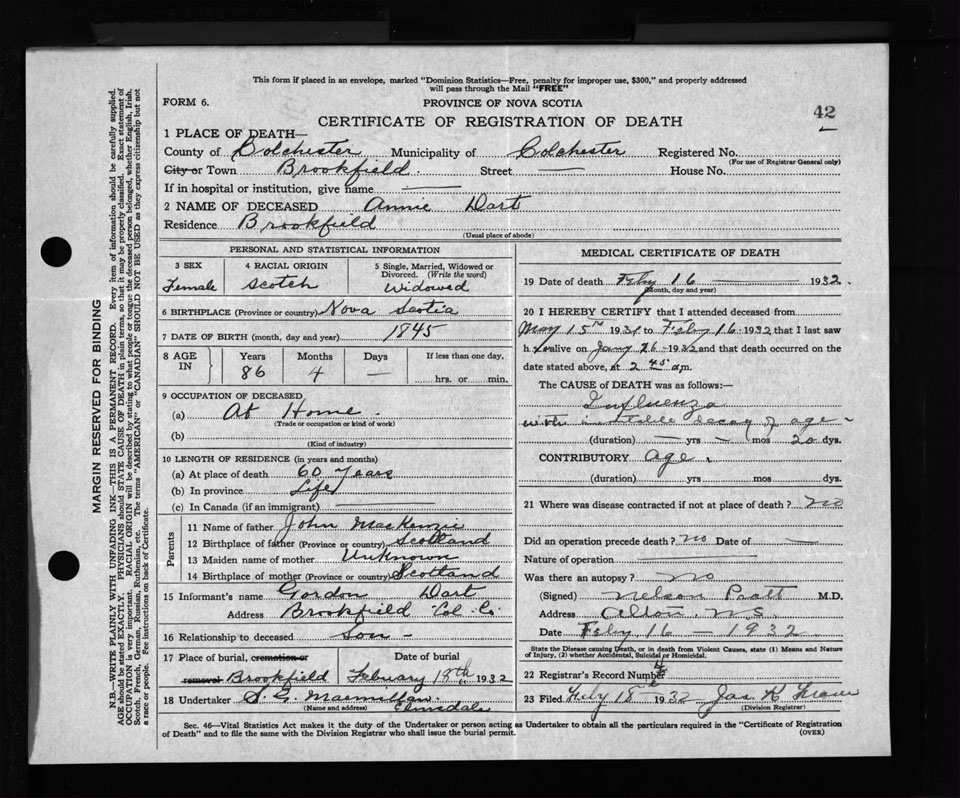 This form if placed in an envelope, marked "Dominion Statistics—Free, penalty for improper use, $300," and properly addressed
will pass through the Mail "FREE"
FORM 6.
PROVINCE OF NOVA SCOTIA
42
CERTIFICATE OF REGISTRATION OF DEATH
1 PLACE OF DEATH—
County of Colchester Municipality of Colchester Registered No.
(For use of Registrar General only)
City or Town Brookfield. Street — House No.
If in hospital or institution, give name —
2 NAME OF DECEASED Annie Dart
Residence Brookfield
(Usual place of abode)
PERSONAL AND STATISTICAL INFORMATION
3 SEX 4 RACIAL ORIGIN 5 Single, Married, Widowed or
Divorced. (Write the word)
Female Scotch Widowed
6 BIRTHPLACE (Province or country) Nova Scotia
7 DATE OF BIRTH (month, day and year) 1845
8 AGE IN Years Months Days If less than one day,
86 4 — hrs. or min.
9 OCCUPATION OF DECEASED
(a) At Home -
(Trade or occupation or kind of work)
(b)
(Kind of industry)
10 LENGTH OF RESIDENCE (in years and months)
(a) At place of death 60 Years
(b) In province Life
(c) In Canada (if an immigrant) —
Parents
11 Name of father John MacKenzie
12 Birthplace of father (Province or country) Scotland
13 Maiden name of mother Unknown
14 Birthplace of mother (Province or country) Scotland
15 Informant's name Gordon Dart
Address Brookfield Col. Co.
16 Relationship to deceased Son -
17 Place of burial, cremation or Date of burial
removal Brookfield February 18th 1932
18 Undertaker S. E. Macmillan.
(Name and address) Elmsdale
MEDICAL CERTIFICATE OF DEATH
19 Date of death Feby 16 — 1932.
(Month, day and year)
20 I HEREBY CERTIFY that I attended deceased from
May 15 1931 to Feby 16 1932 that I last saw
her alive on Jany 26 1932 and that death occurred on the
date stated above, at 2 45 a.m.
The CAUSE of DEATH was as follows:—
Influenza
with decay of age -
(duration) — yrs — mos 20 dys.
CONTRIBUTORY age.
(duration) yrs mos dys.
21 Where was disease contracted if not at place of death? No
Did an operation precede death? no Date of —
Nature of operation —
Was there an autopsy? no
(Signed) Nelson Pratt M.D.
Address Alton, N.S.
Date Feby 16 — 1932
State the Disease causing Death, or in death from Violent Causes, state (1) Means and Nature
of Injury, (2) whether Accidental, Suicidal or Homicidal.
22 Registrar's Record Number 4
23 Filed Feby 18 1932 Jas. K
(Division Registrar)
Sec. 46—Vital Statistics Act makes it the duty of the Undertaker or person acting as Undertaker to obtain all the particulars required in the "Certificate of Registration
of Death" and to file the same with the Division Registrar who shall issue the burial permit.
(OVER)
MARGIN RESERVED FOR BINDING
N.B.—WRITE PLAINLY WITH UNFADING INK—THIS IS A PERMANENT RECORD. Every item of information should be carefully supplied.
AGE should be stated EXACTLY. PHYSICIANS should STATE CAUSE OF DEATH in plain terms, so that it may be properly classified. Exact statement of
OCCUPATION is very important. RACIAL ORIGIN will be described by stating to what people or tongue the deceased person belonged, whether English, Irish,
Scotch, French, German, Russian, Ruthenian, etc. The terms "AMERICAN" or "CANADIAN" SHOULD NOT BE USED as they express citizenship but not
a race or people. See instructions on back of Certificate.